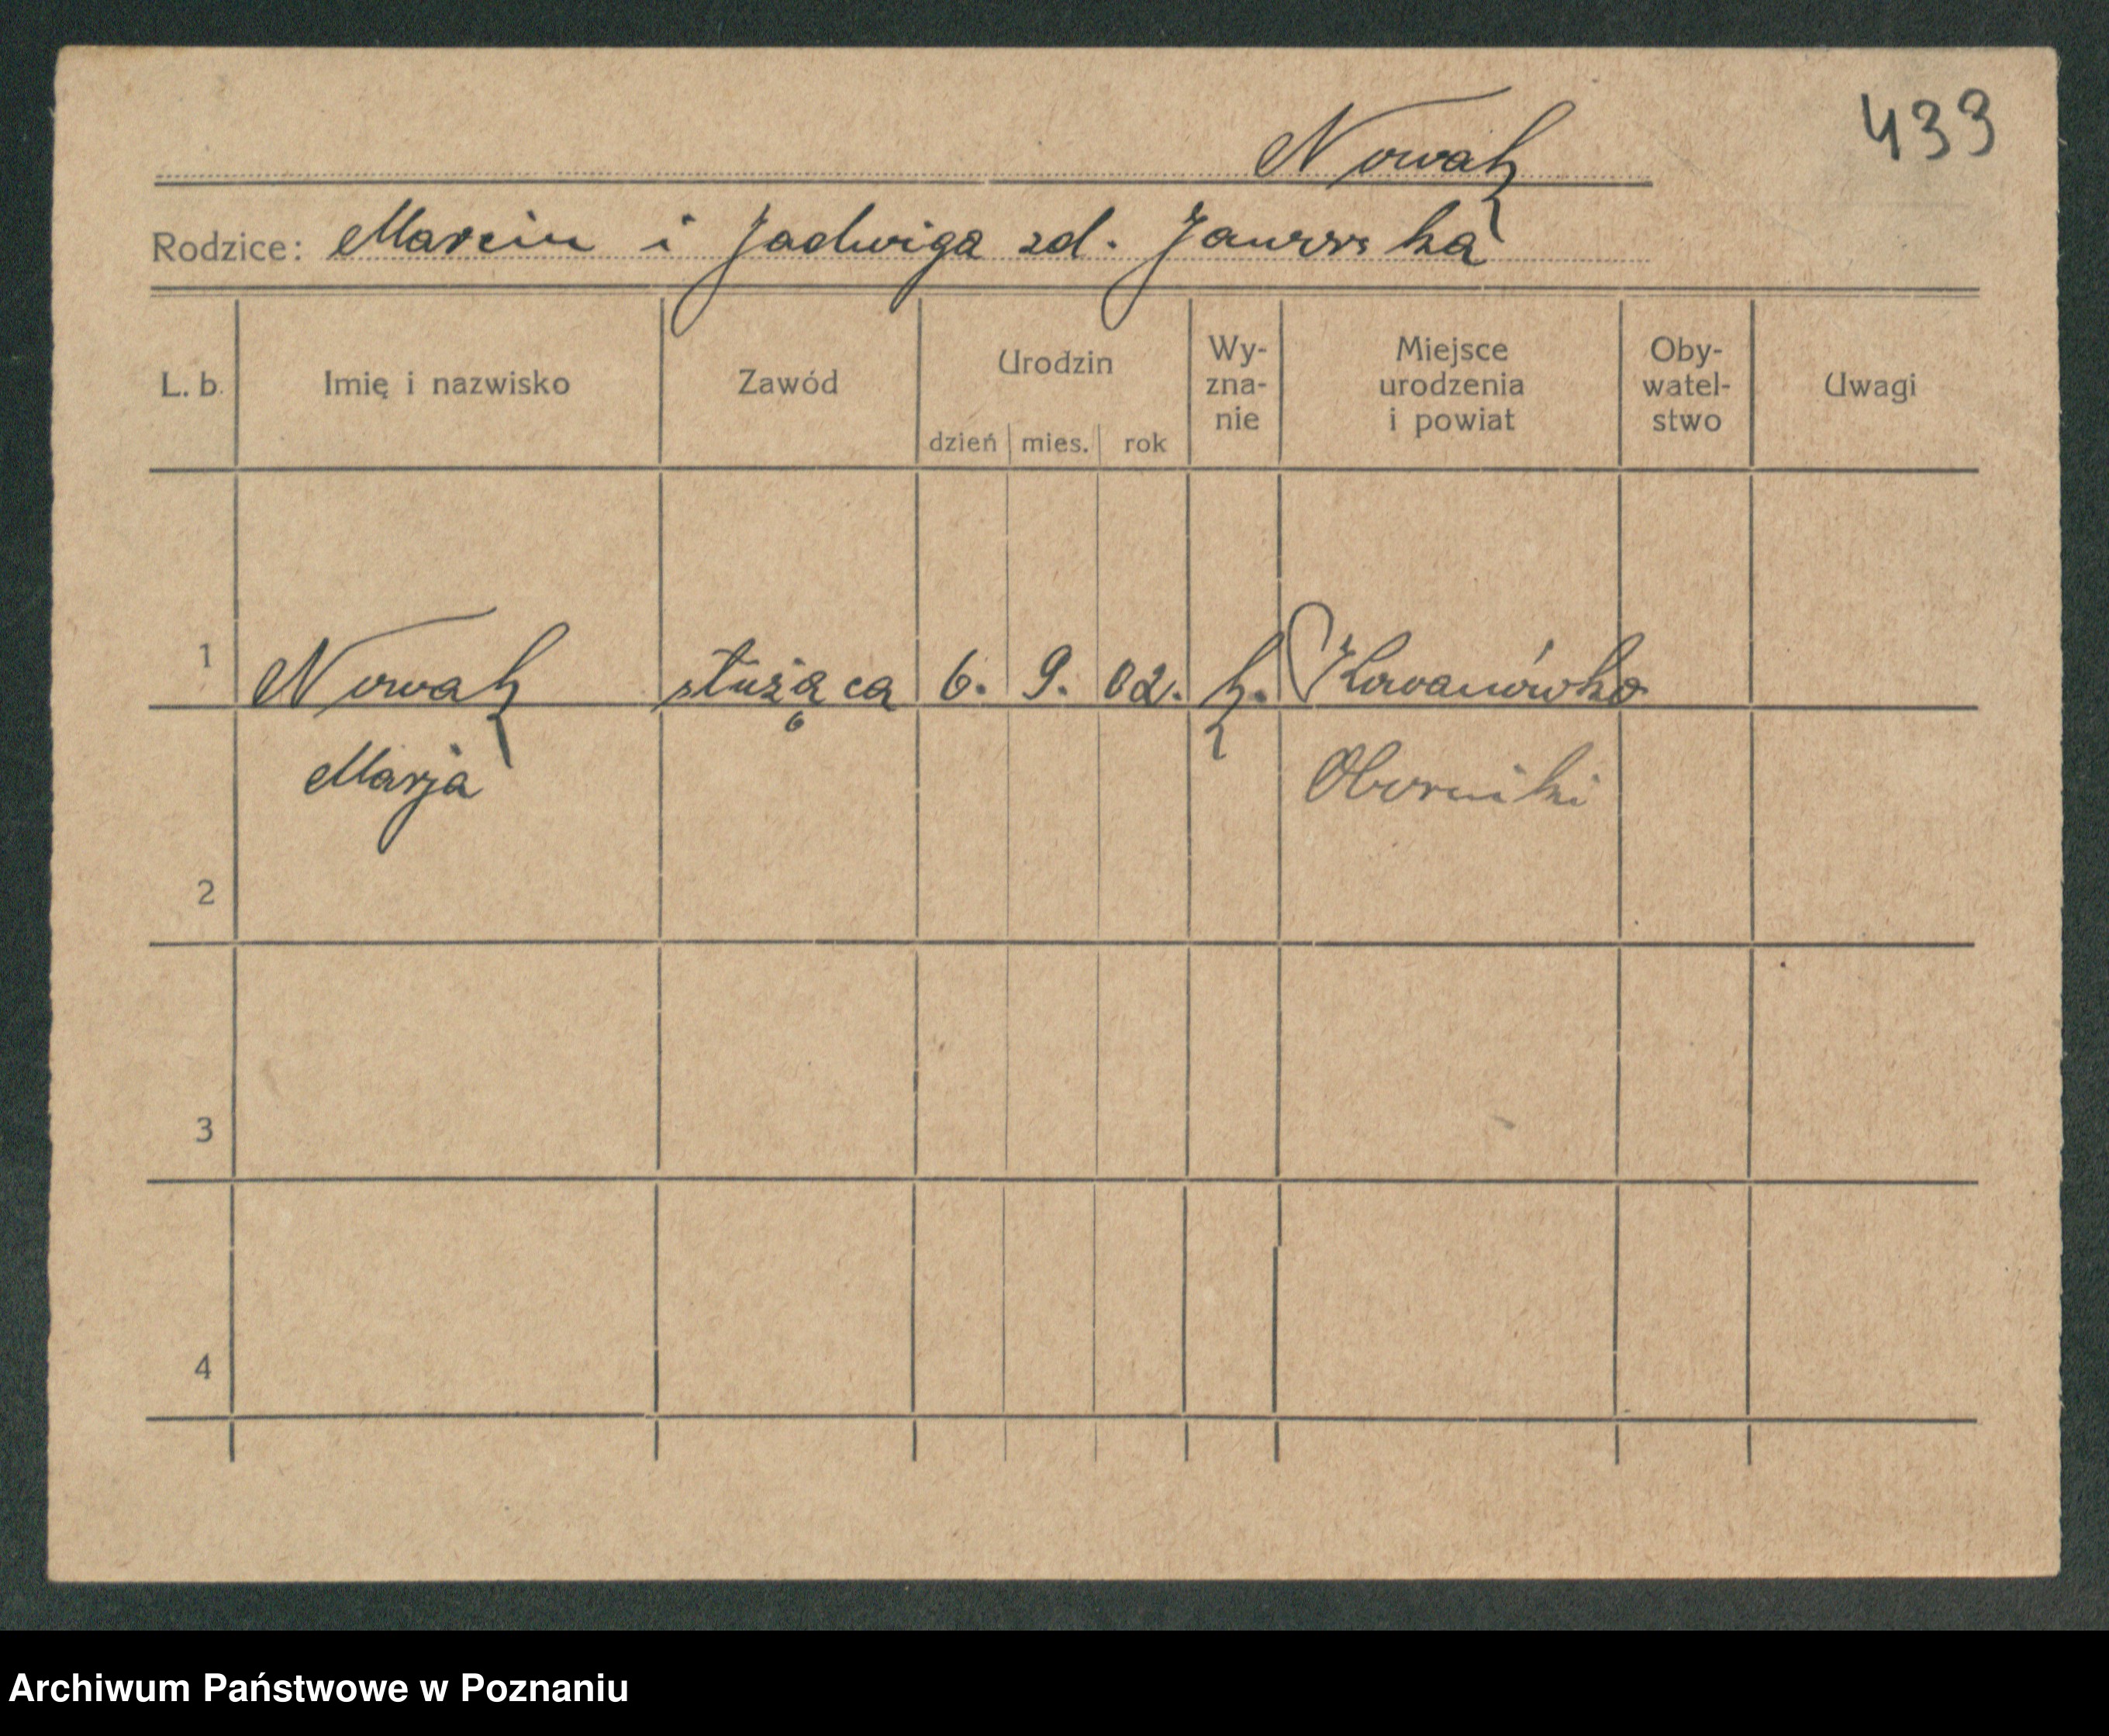 433
Nowak
Rodzice: Marcin i Jadwiga zd.
L. b. Imię i nazwisko Zawód Urodzin dzień mies. rok Wy-zna-nie Miejsce urodzenia i powiat Oby-watel-stwo Uwagi
1 Nowak służąca 6. 9. 02. k. Kowanówko
Marja Oborniki
2
3
4
Archiwum Państwowe w Poznaniu